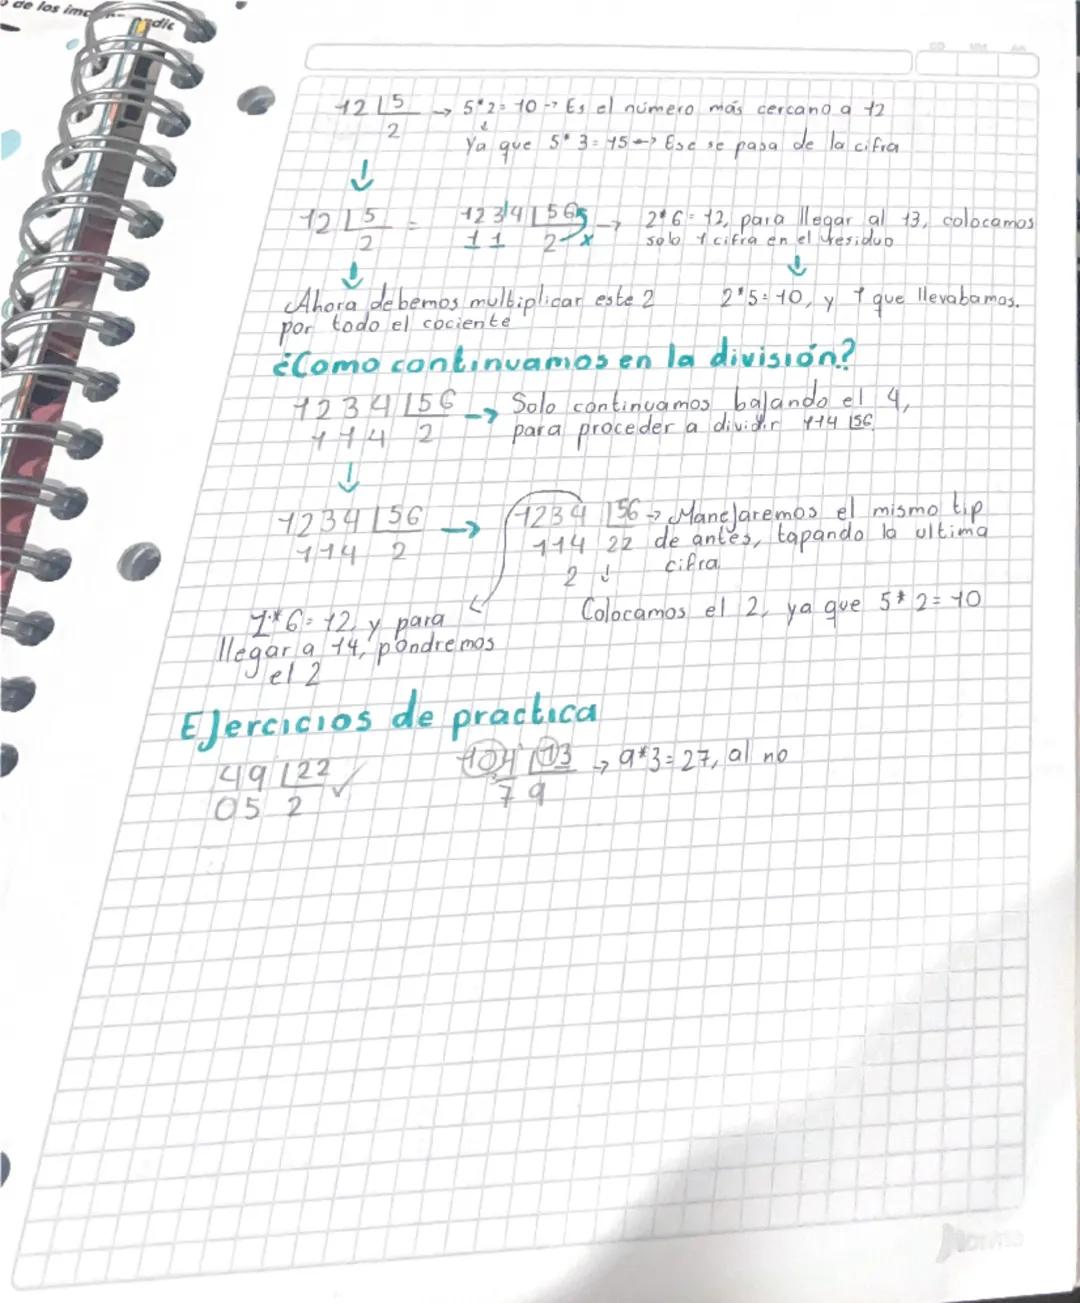 de los
12 |5 → 5*2=10 → Es el número más cercano a 12
2
Ya que 5*3=15 → Ese se pasa de la cifra
12 |5 = 123'4 |56 → 2*6=12, para llegar al 13, colocamos
2 11 2 x solo 1 cifra en el residuo
Ahora debemos multiplicar este 2 2*5=10, y 1 que llevabamos.
por todo el cociente
¿Como continuamos en la división?
1234 |56 → Solo continuamos bajando el 4,
114 2 para proceder a dividir 114 |56
1234 |56 → 1234 |56 → Manejaremos el mismo tip
114 2 114 22 de antes, tapando la ultima
2 cifra
Colocamos el 2, ya que 5*2=10
2*6=12, y para
llegar a 14, pondremos
el 2
Ejercicios de practica
49 |22 ✓ 104 |13 → 9*3=27, al no
05 2 7 9
Norma